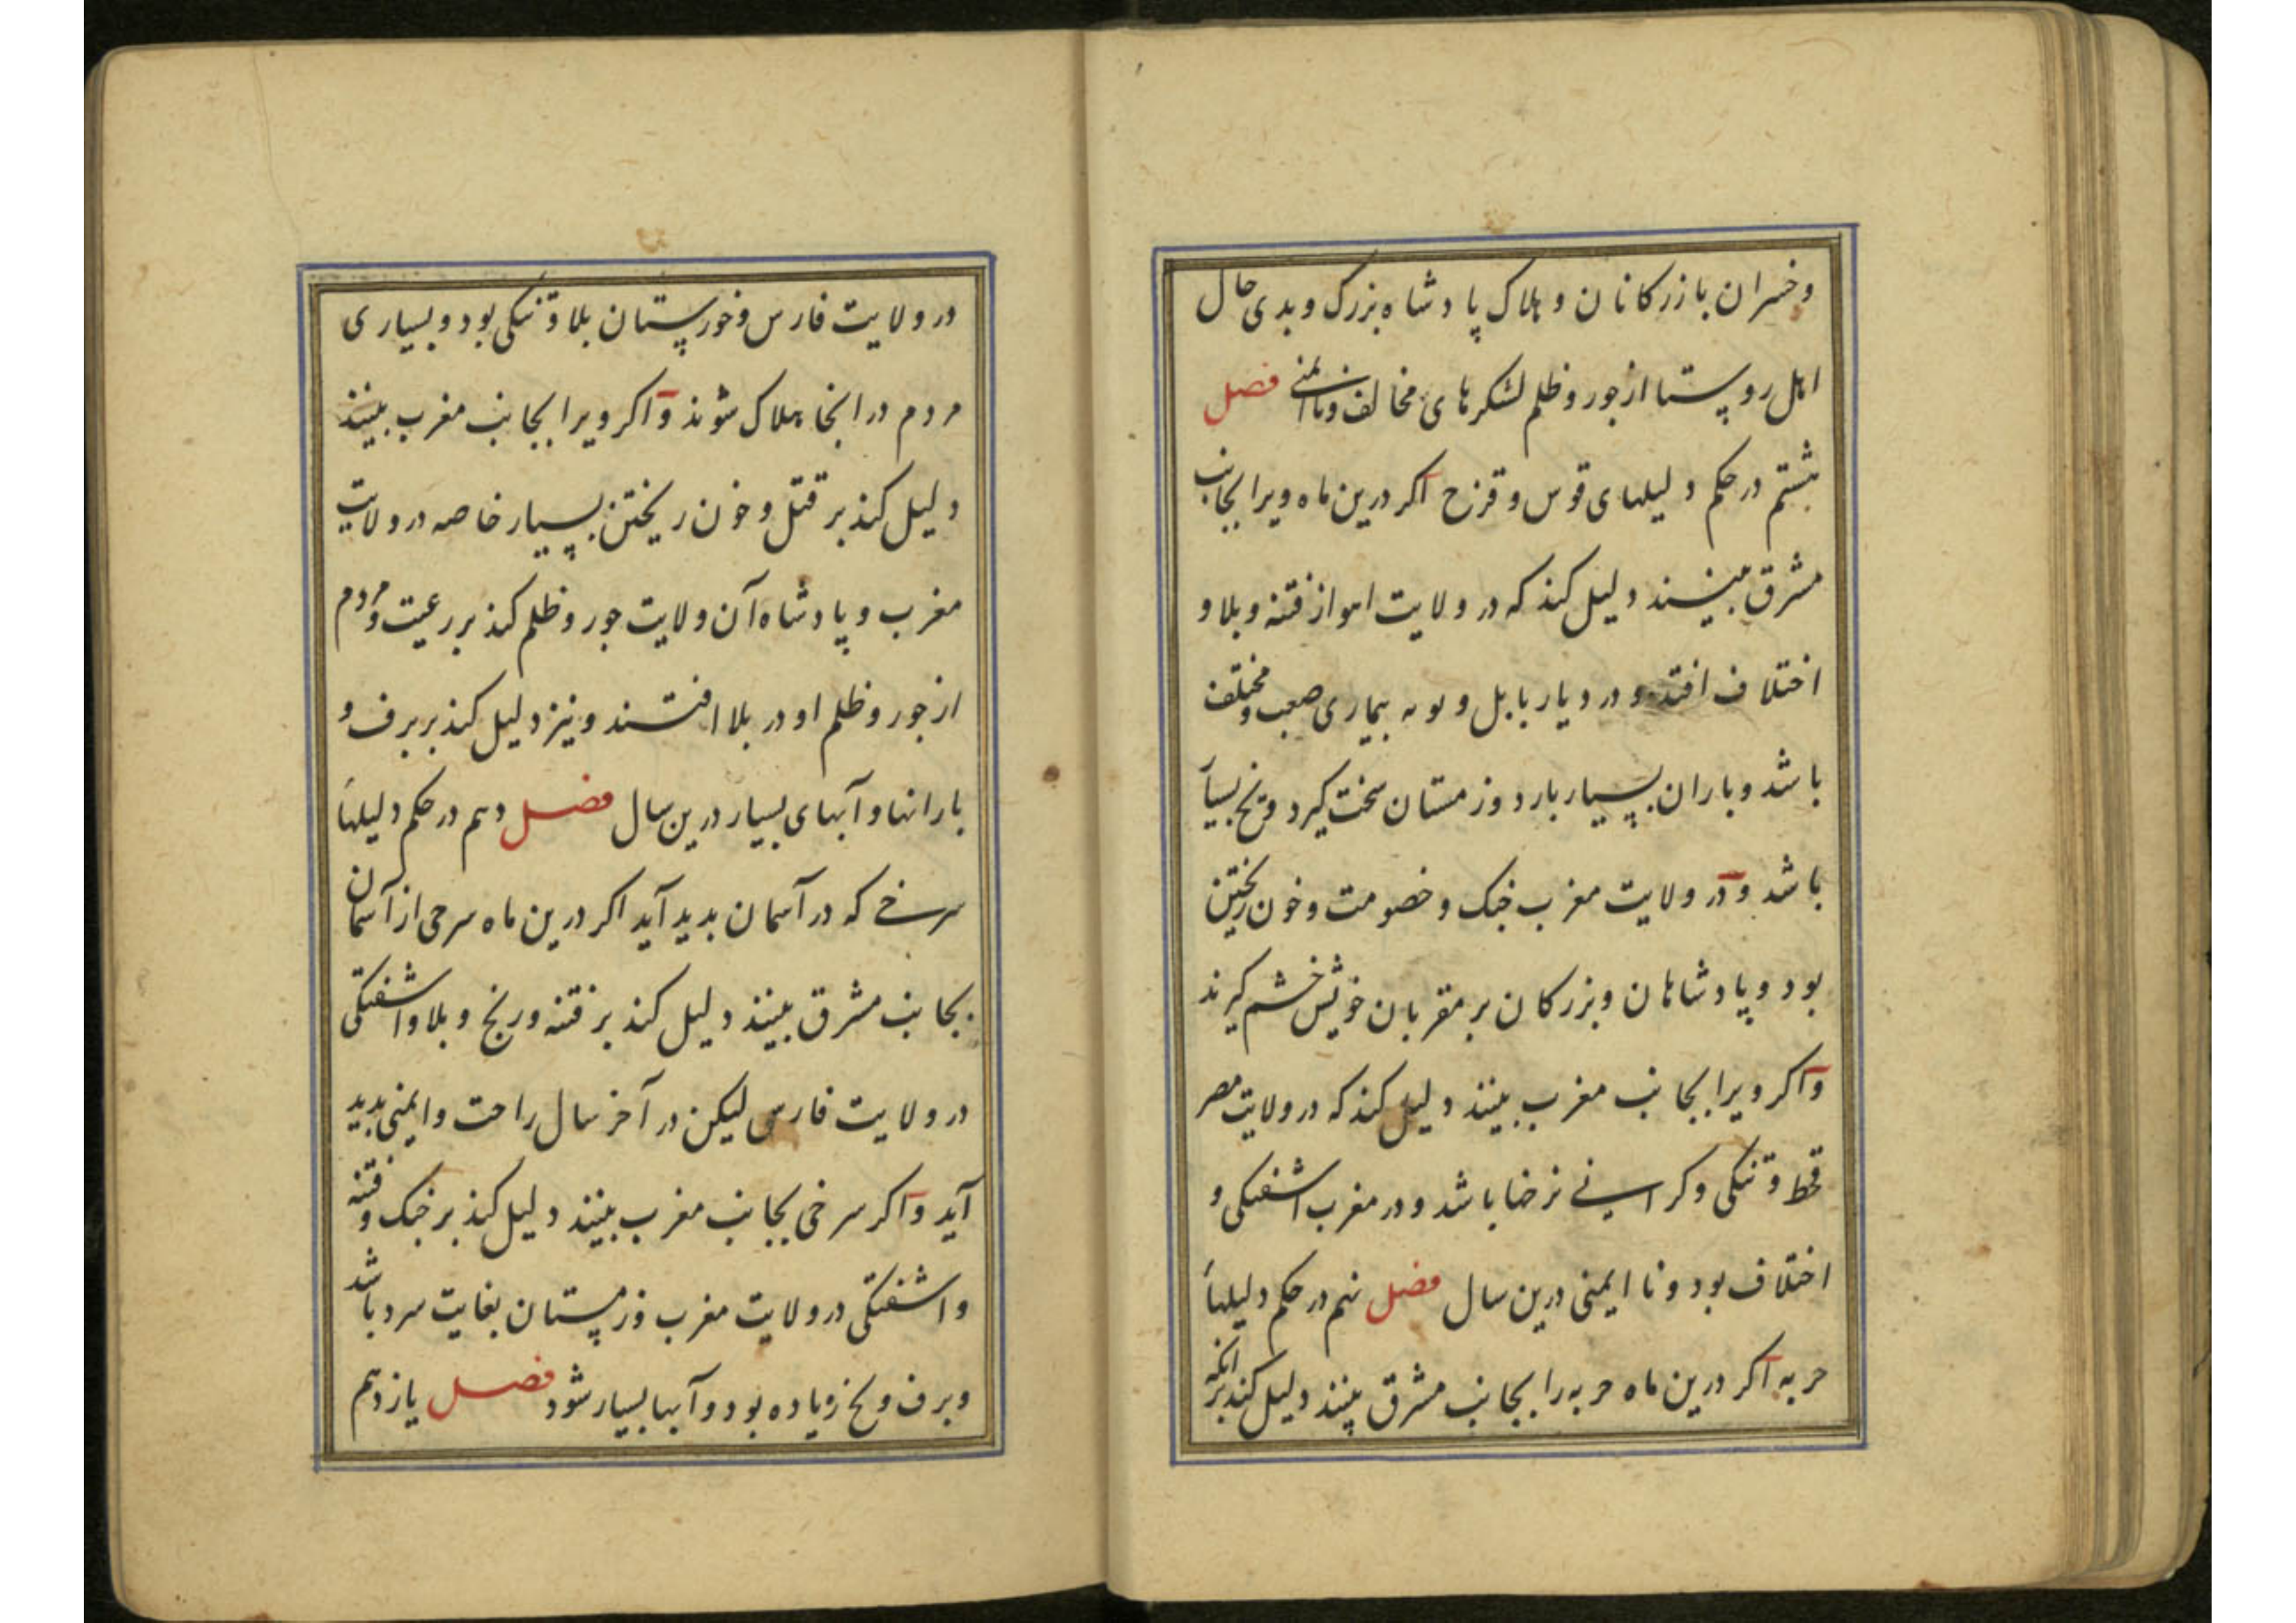 وخسران بازرکانان و هلاک پادشاه بزرک و بدی حال
اهل روستا از جور و ظلم لشکرهای مخالف و ناایمنی فصل
هشتم در حکم دلیلهای قوس و قزح اکر درین ماه ویرا بجانب
مشرق بینند دلیل کند که در ولایت اهواز فتنه و بلا و
اختلاف افتد و در دیار بابل و بیماری صعب و مختلف
باشد و باران بسیار بارد و زمستان سخت کیرد و یخ بسیار
باشد و در ولایت مغرب جنک و خصومت و خون ریختن
بود و پادشاهان و بزرکان بر مقربان خویش خشم کیرند
واکر ویرا بجانب مغرب بینند دلیل کند که در ولایت مصر
قحط و تنکی و کراسنی نرخها باشد و در مغرب اشفتکی و
اختلاف بود و نا ایمنی درین سال فصل نهم در حکم دلیلهاء
حربه اکر درین ماه حربه را بجانب مشرق بینند دلیل کند بر انکه
در ولایت فارس و خورستان بلا و تنکی بود و بسیاری
مردم در انجا هلاک شوند واکر ویرا بجانب مغرب بینند
دلیل کند بر قتل و خون ریختن بسیار خاصه در ولایت
مغرب و پادشاه آن ولایت جور و ظلم کند بر رعیت و مردم
از جور و ظلم او در بلا افتند و نیز دلیل کند بر برف و
بارانها و آبهای بسیار درین سال فصل دهم در حکم دلیلهاء
سرخی که در آسمان بدید آید اکر درین ماه سرخی از آسمان
بجانب مشرق بینند دلیل کند بر فتنه و رنج و بلا و اشفتکی
در ولایت فارس لیکن در آخر سال راحت و ایمنی بدید
آید واکر سرخی بجانب مغرب بینند دلیل کند بر جنک و فتنه
و اشفتکی در ولایت مغرب و زمستان بغایت سرد باشد
و برف و یخ زیاده بود و آبها بسیار شود فصل یازدهم